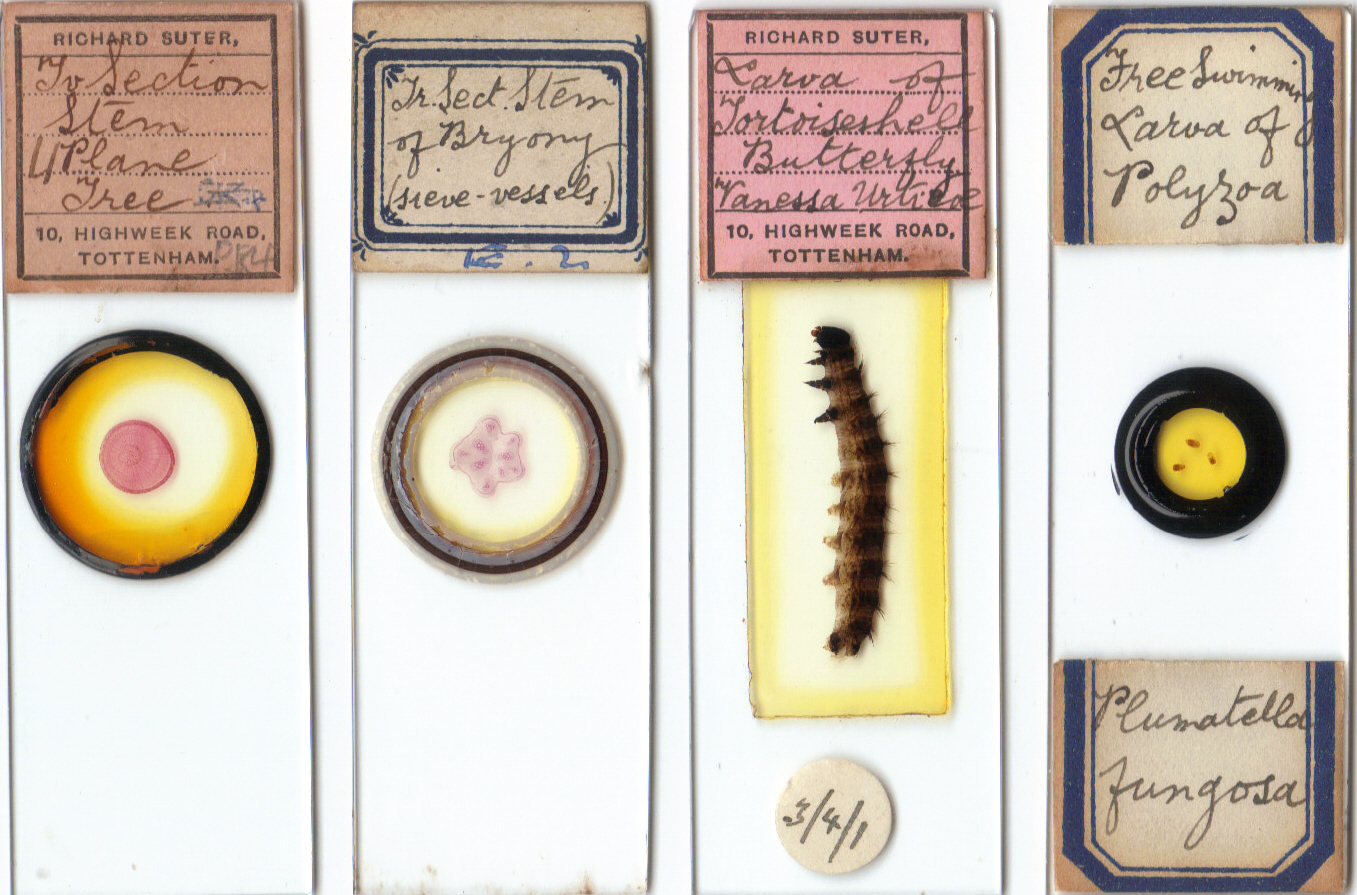 RICHARD SUTER,
Tv Section
Stem
4 Plane
Tree
10, HIGHWEEK ROAD,
TOTTENHAM.
Tr. Sect. Stem
of Bryony
(sieve-vessels)
RICHARD SUTER,
Larva of
Tortoiseshell
Butterfly
Vanessa Urticæ
10, HIGHWEEK ROAD,
TOTTENHAM.
3/4/1
Free Swimming
Larva of
Polyzoa
Plumatella
fungosa